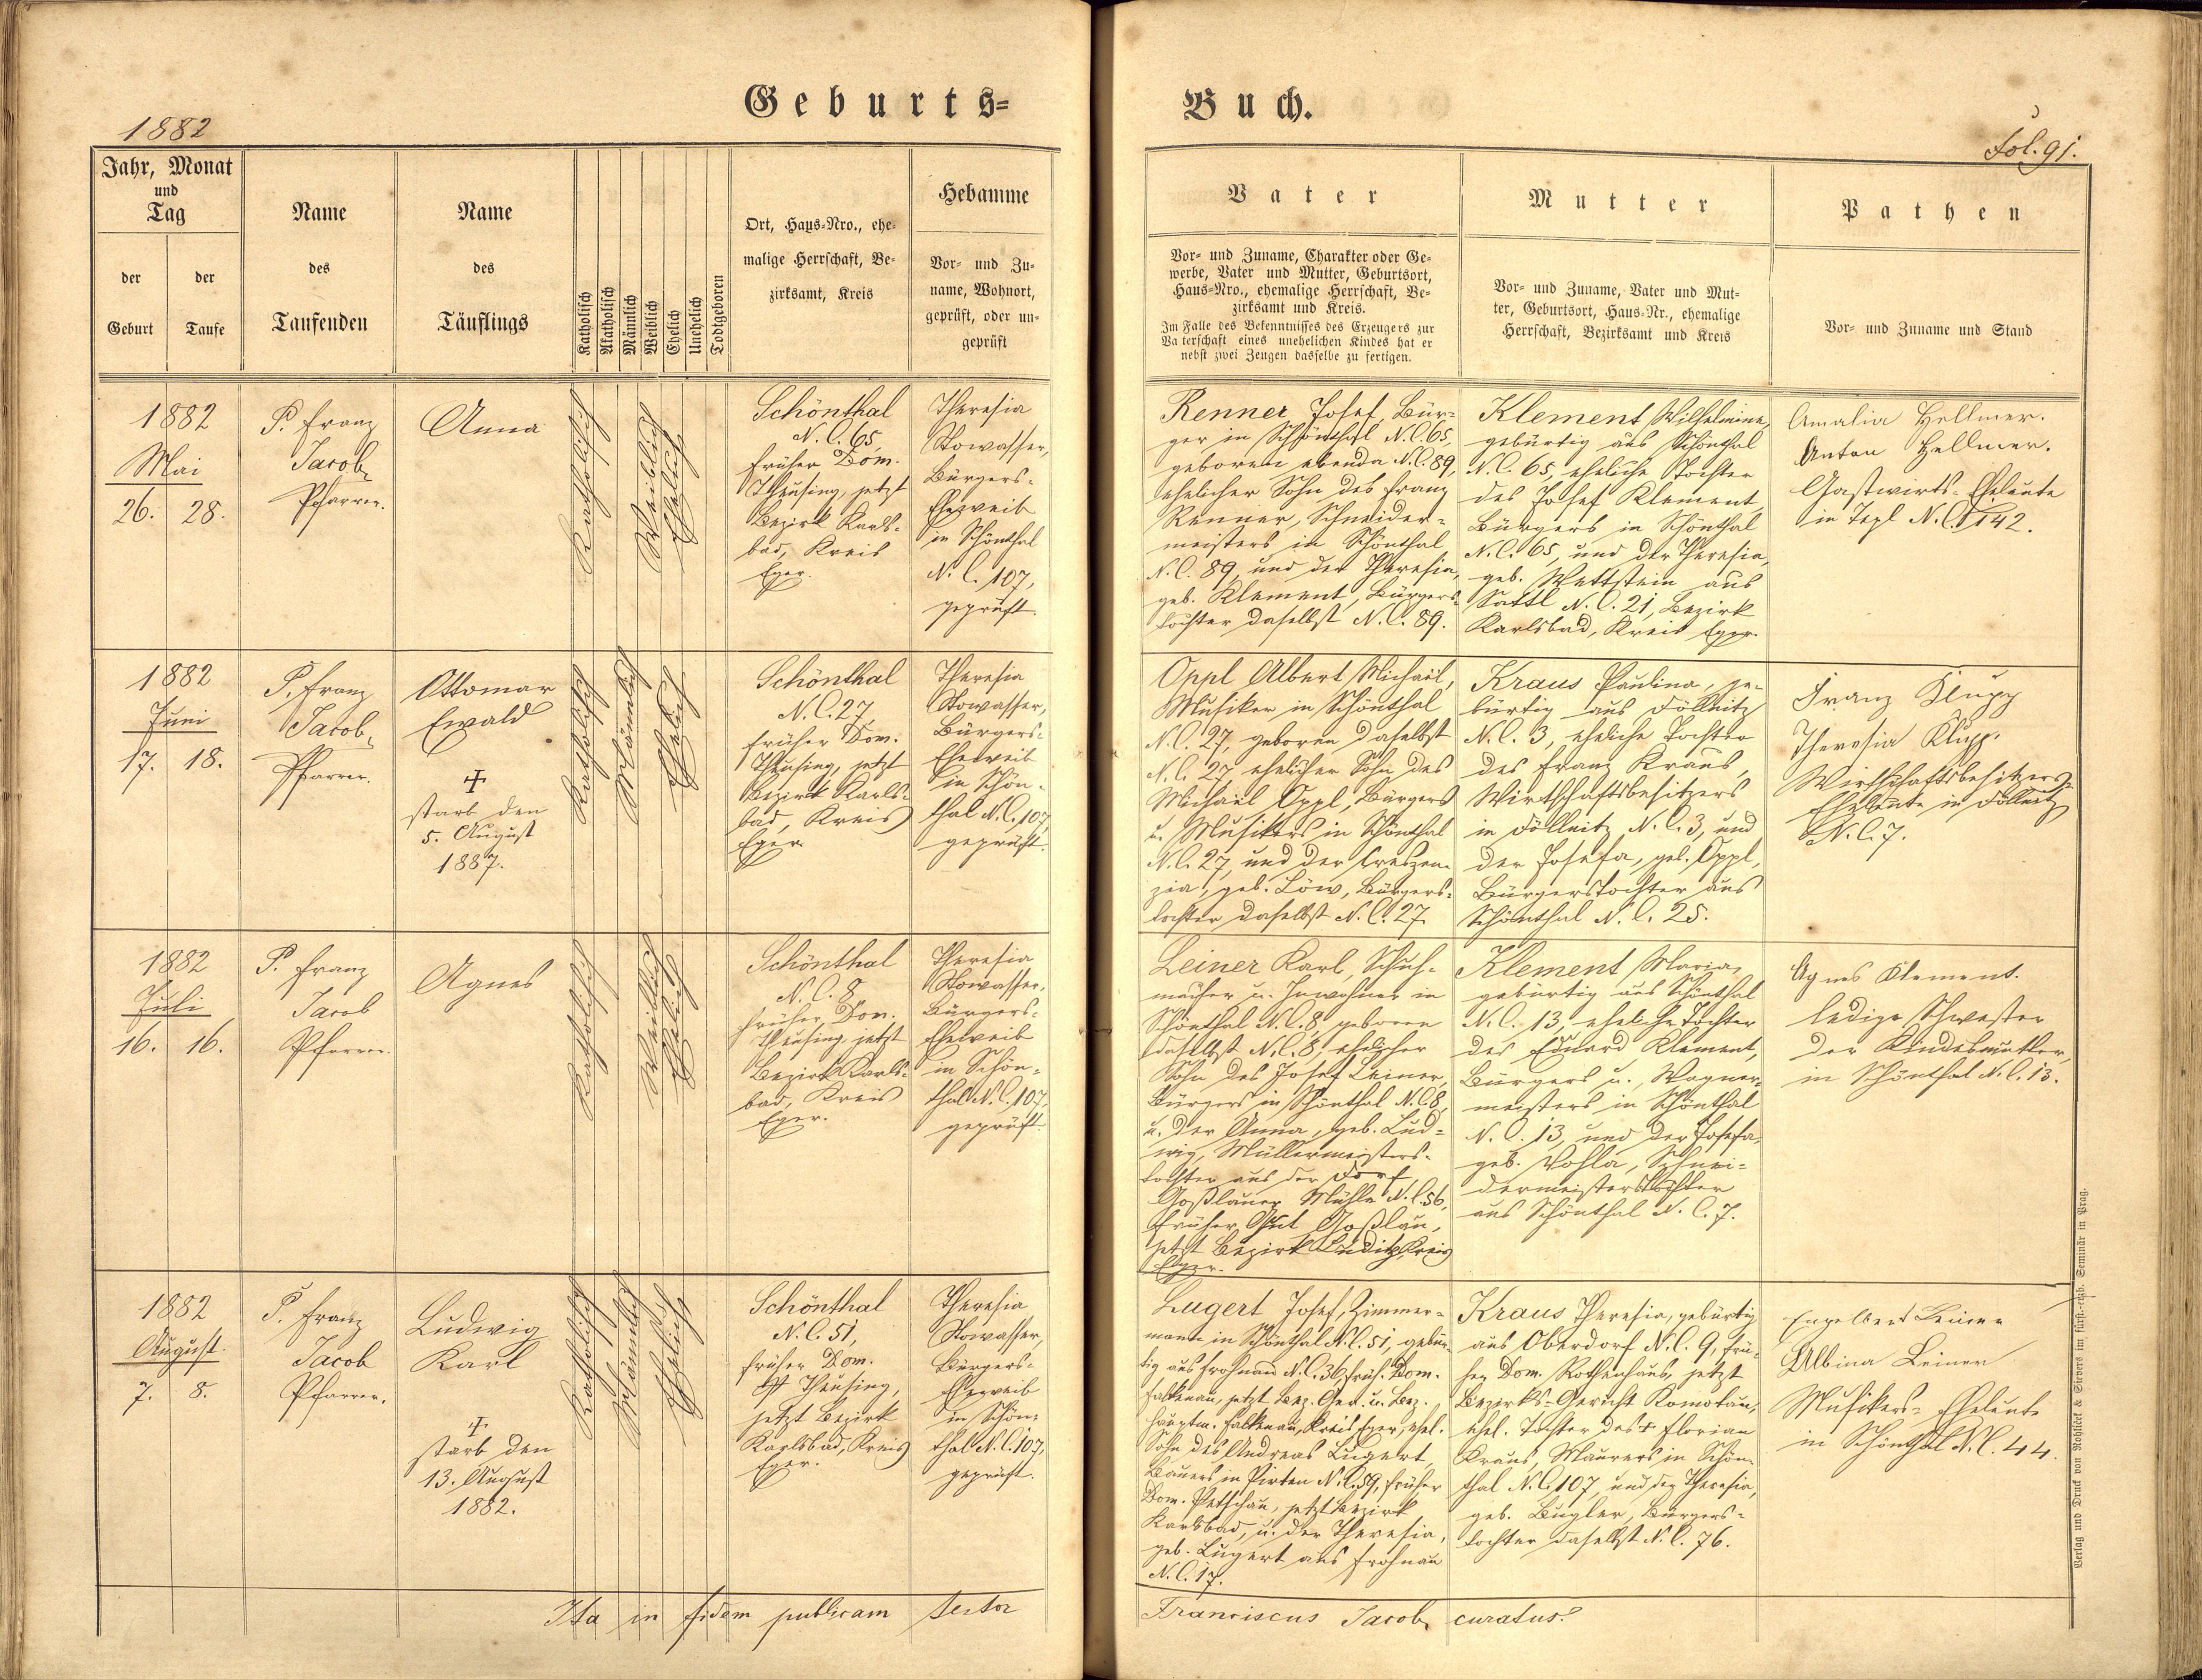 Geburts=
Buch.
1882
Fol. 91.
Jahr, Monat
und
Tag
der
Geburt
der
Taufe
Name
des
Taufenden
Name
des
Täuflings
Katholisch
Akatholisch
Männlich
Weiblich
Ehelich
Unehelich
Todtgeboren
Ort, Haus=Nro., ehe=
malige Herrschaft, Be=
zirksamt, Kreis
Hebamme
Vor= und Zu=
name, Wohnort,
geprüft, oder un=
geprüft
Vater
Vor= und Zuname, Charakter oder Ge=
werbe, Vater und Mutter, Geburtsort,
Haus=Nro., ehemalige Herrschaft, Be=
zirksamt und Kreis.
Im Falle des Bekenntnisses des Erzeugers zur
Vaterschaft eines unehelichen Kindes hat er
nebst zwei Zeugen dasselbe zu fertigen.
Mutter
Vor= und Zuname, Vater und Mut=
ter, Geburtsort, Haus=Nr., ehemalige
Herrschaft, Bezirksamt und Kreis
Pathen
Vor= und Zuname und Stand
1882
Mai
26. 28.
P. Franz
Jacob,
Pfarrer.
Anna
Katholisch
Weiblich
Ehelich
Schönthal
N. C. 65,
früher Dom.
Theusing, jetzt
Bezirk Karls=
bad, Kreis
Eger.
Theresia
Stowasser,
Bürgers=
Eheweib
in Schönthal
N. C. 107,
geprüft.
Renner Josef, Bür=
ger in Schönthal N.C. 65,
geboren ebenda N.C. 89,
ehelicher Sohn des Franz
Renner, Schneider=
meisters in Schönthal
N.C. 89, und der Theresia,
geb. Klement, Bürgers=
tochter daselbst N.C. 89.
Klement Wilhelmine,
gebürtig aus Schönthal
N.C. 65, eheliche Tochter
des Josef Klement,
Bürgers in Schönthal
N.C. 65, und der Theresia,
geb. Wattstein aus
Sattl N.C. 21, Bezirk
Karlsbad, Kreis Eger.
Amalia Hellmer.
Anton Hellmer.
Gastwirts=Eheleute
in Tepl N.C. 142.
1882
Juni
17. 18.
P. Franz
Jacob,
Pfarrer.
Ottomar
Ewald
+
starb den
5. August
1887.
Katholisch
Männlich
Ehelich
Schönthal
N.C. 27,
früher Dom.
Theusing, jetzt
Bezirk Karls=
bad, Kreis
Eger.
Theresia
Stowasser,
Bürgers=
Eheweib
in Schön=
thal N.C. 107,
geprüft.
Oppl Albert Michael,
Musiker in Schönthal
N.C. 27, geboren daselbst
N.C. 27, ehelicher Sohn des
Michael Oppl, Bürgers
u. Musikers in Schönthal
N.C. 27, und der Creszen=
zia, geb. Löw, Bürgers=
tochter daselbst N.C. 27.
Kraus Paulina, ge=
bürtig aus Döllnitz
N.C. 3, eheliche Tochter
des Franz Kraus,
Wirthschaftsbesitzers
in Döllnitz N.C. 3, und
der Josefa, geb. Oppl,
Bürgerstochter aus
Schönthal N.C. 25.
Franz Klupp
Theresia Klupp.
Wirthschaftsbesitzers=
Eheleute in Döllnitz
N.C. 7.
1882
Juli
16. 16.
P. Franz
Jacob
Pfarrer.
Agnes
Katholisch
Weiblich
Ehelich
Schönthal
N.C. 8,
früher Dom.
Theusing, jetzt
Bezirk Karls=
bad, Kreis
Eger.
Theresia
Stowasser,
Bürgers=
Eheweib
in Schön=
thal N.C. 107,
geprüft.
Leiner Karl, Schuh=
macher u. Inwohner in
Schönthal N.C. 8, geboren
daselbst N.C. 8, ehelicher
Sohn des Josef Leiner,
Bürgers in Schönthal N.C. 8,
u. der Anna, geb. Lud=
wig, Müllermeisters=
tochter aus der Dorf
Goßlauer Mühle N.C. 56,
früher Gut Goßlau,
jetzt Bezirk Luditz, Kreis
Eger.
Klement Maria,
gebürtig aus Schönthal
N.C. 13, eheliche Tochter
des Eduard Klement,
Bürgers u. Wagner=
meisters in Schönthal
N.C. 13, und der Josefa,
geb. Vohla, Schnei=
dermeisterstochter
aus Schönthal N.C. 7.
Agnes Klement.
ledige Schwester
der Kindesmutter,
in Schönthal N.C. 13.
1882
August.
7. 8.
P. Franz
Jacob
Pfarrer.
Ludwig
Karl
+
starb den
13. August
1882.
Katholisch
Männlich
Ehelich
Schönthal
N.C. 51,
früher Dom.
Theusing,
jetzt Bezirk
Karlsbad, Kreis
Eger.
Theresia
Stowasser,
Bürgers=
Eheweib
in Schön=
thal N.C. 107,
geprüft.
Lugert Josef, Zimmer=
mann in Schönthal N.C. 51, gebür=
tig aus Frohnau N.C. 36, früh. Dom.
Falkenau, jetzt Bez. Ger. u. Bez.
Hauptm. Falkenau, Kreis Eger, ehel.
Sohn des Andreas Lugert,
Bauers in Pirten N.C. 59, früher
Dom. Petschau, jetzt Bezirk
Karlsbad, u. der Theresia,
geb. Lugert aus Frohnau
N.C. 17.
Kraus Theresia, gebürtig
aus Oberdorf N.C. 9, frü=
her Dom. Rothenhaus, jetzt
Bezirks=Gericht Komotau,
ehel. Tochter des + Florian
Kraus, Maurers in Schön=
thal N.C. 107, und der Theresia,
geb. Bugler, Bürgers=
tochter daselbst N.C. 76.
Engelbert Leiner
Albina Leiner
Musikers=Eheleute
in Schönthal N.C. 44.
Ita in fidem publicam testor
Franciscus Jacob, curatus.
Verlag und Druck von Rohliček & Sievers im fürst.=erzb. Seminär in Prag.